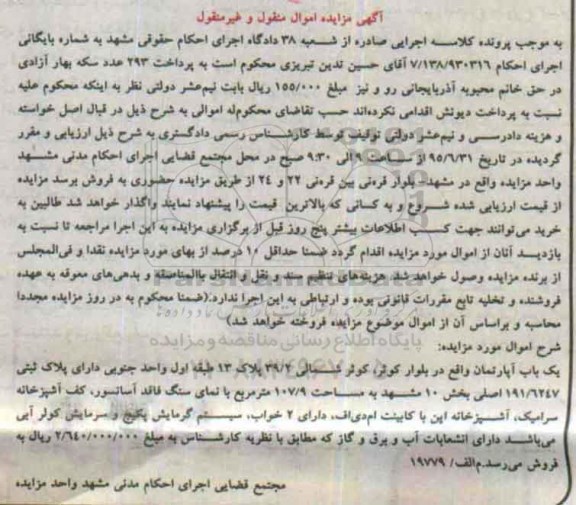 آگهی مزایده اموال منقول و غیرمنقول
به موجب پرونده کلاسه اجرایی صادره از شعبه ۳۸ دادگاه اجرای احکام حقوقی مشهد به شماره بایگانی
اجرای احکام ۷/۱۳۸/۹۳۰۳۱۶ آقای حسین تدین تبریزی محکوم است به پرداخت ۲۹۳ عدد سکه بهار آزادی
در حق خانم محبوبه آذربایجانی رو و نیز مبلغ ۱۵۵/۰۰۰ ریال بابت نیم‌عشر دولتی نظر به اینکه محکوم علیه
نسبت به پرداخت دیونش اقدامی نکرده‌اند حسب تقاضای محکوم‌له اموالی به شرح ذیل در قبال اصل خواسته
و هزینه دادرسی و نیم‌عشر دولتی توقیف توسط کارشناس رسمی دادگستری به شرح ذیل ارزیابی و مقرر
گردیده در تاریخ ۹۵/۶/۳۱ از ساعت ۹ الی ۹:۳۰ صبح در محل مجتمع قضایی اجرای احکام مدنی مشهد
واحد مزایده واقع در مشهد- بلوار قره‌نی بین قره‌نی ۲۲ و ۲۴ از طریق مزایده حضوری به فروش برسد مزایده
از قیمت ارزیابی شده شروع و به کسانی که بالاترین قیمت را پیشنهاد نمایند واگذار خواهد شد طالبین به
خرید می‌توانند جهت کسب اطلاعات بیشتر پنج روز قبل از برگزاری مزایده به این اجرا مراجعه تا نسبت به
بازدید آنان از اموال مورد مزایده اقدام گردد ضمنا حداقل ۱۰ درصد از بهای مورد مزایده نقدا و فی‌المجلس
از برنده مزایده وصول خواهد شد. هزینه‌های تنظیم سند و نقل و انتقال باالمناصفه و بدهی‌های معوقه به عهده
فروشنده و تخلیه تابع مقررات قانونی بوده و ارتباطی به این اجرا ندارد.(ضمنا محکوم به در روز مزایده مجددا
محاسبه و براساس آن از اموال موضوع مزایده فروخته خواهد شد)
پایگاه اطلاع رسانی مناقصه و مزایده
شرح اموال مورد مزایده:
یک باب آپارتمان واقع در بلوار کوثر، کوثر شمالی ۳۹/۲ پلاک ۱۳ طبقه اول واحد جنوبی دارای پلاک ثبتی
۱۹۱/۶۲۴۷ اصلی بخش ۱۰ مشهد به مساحت ۱۰۷/۹ مترمربع با نمای سنگ فاقد آسانسور، کف آشپزخانه
سرامیک، آشپزخانه اپن با کابینت ام‌دی‌اف، دارای ۲ خواب، سیستم گرمایش پکیج و سرمایش کولر آبی
می‌باشد دارای انشعابات آب و برق و گاز که مطابق با نظریه کارشناس به مبلغ ۲/۶۴۰/۰۰۰/۰۰۰ ریال به
فروش می‌رسد.م‌الف/ ۱۹۷۷۹
مجتمع قضایی اجرای احکام مدنی مشهد واحد مزایده